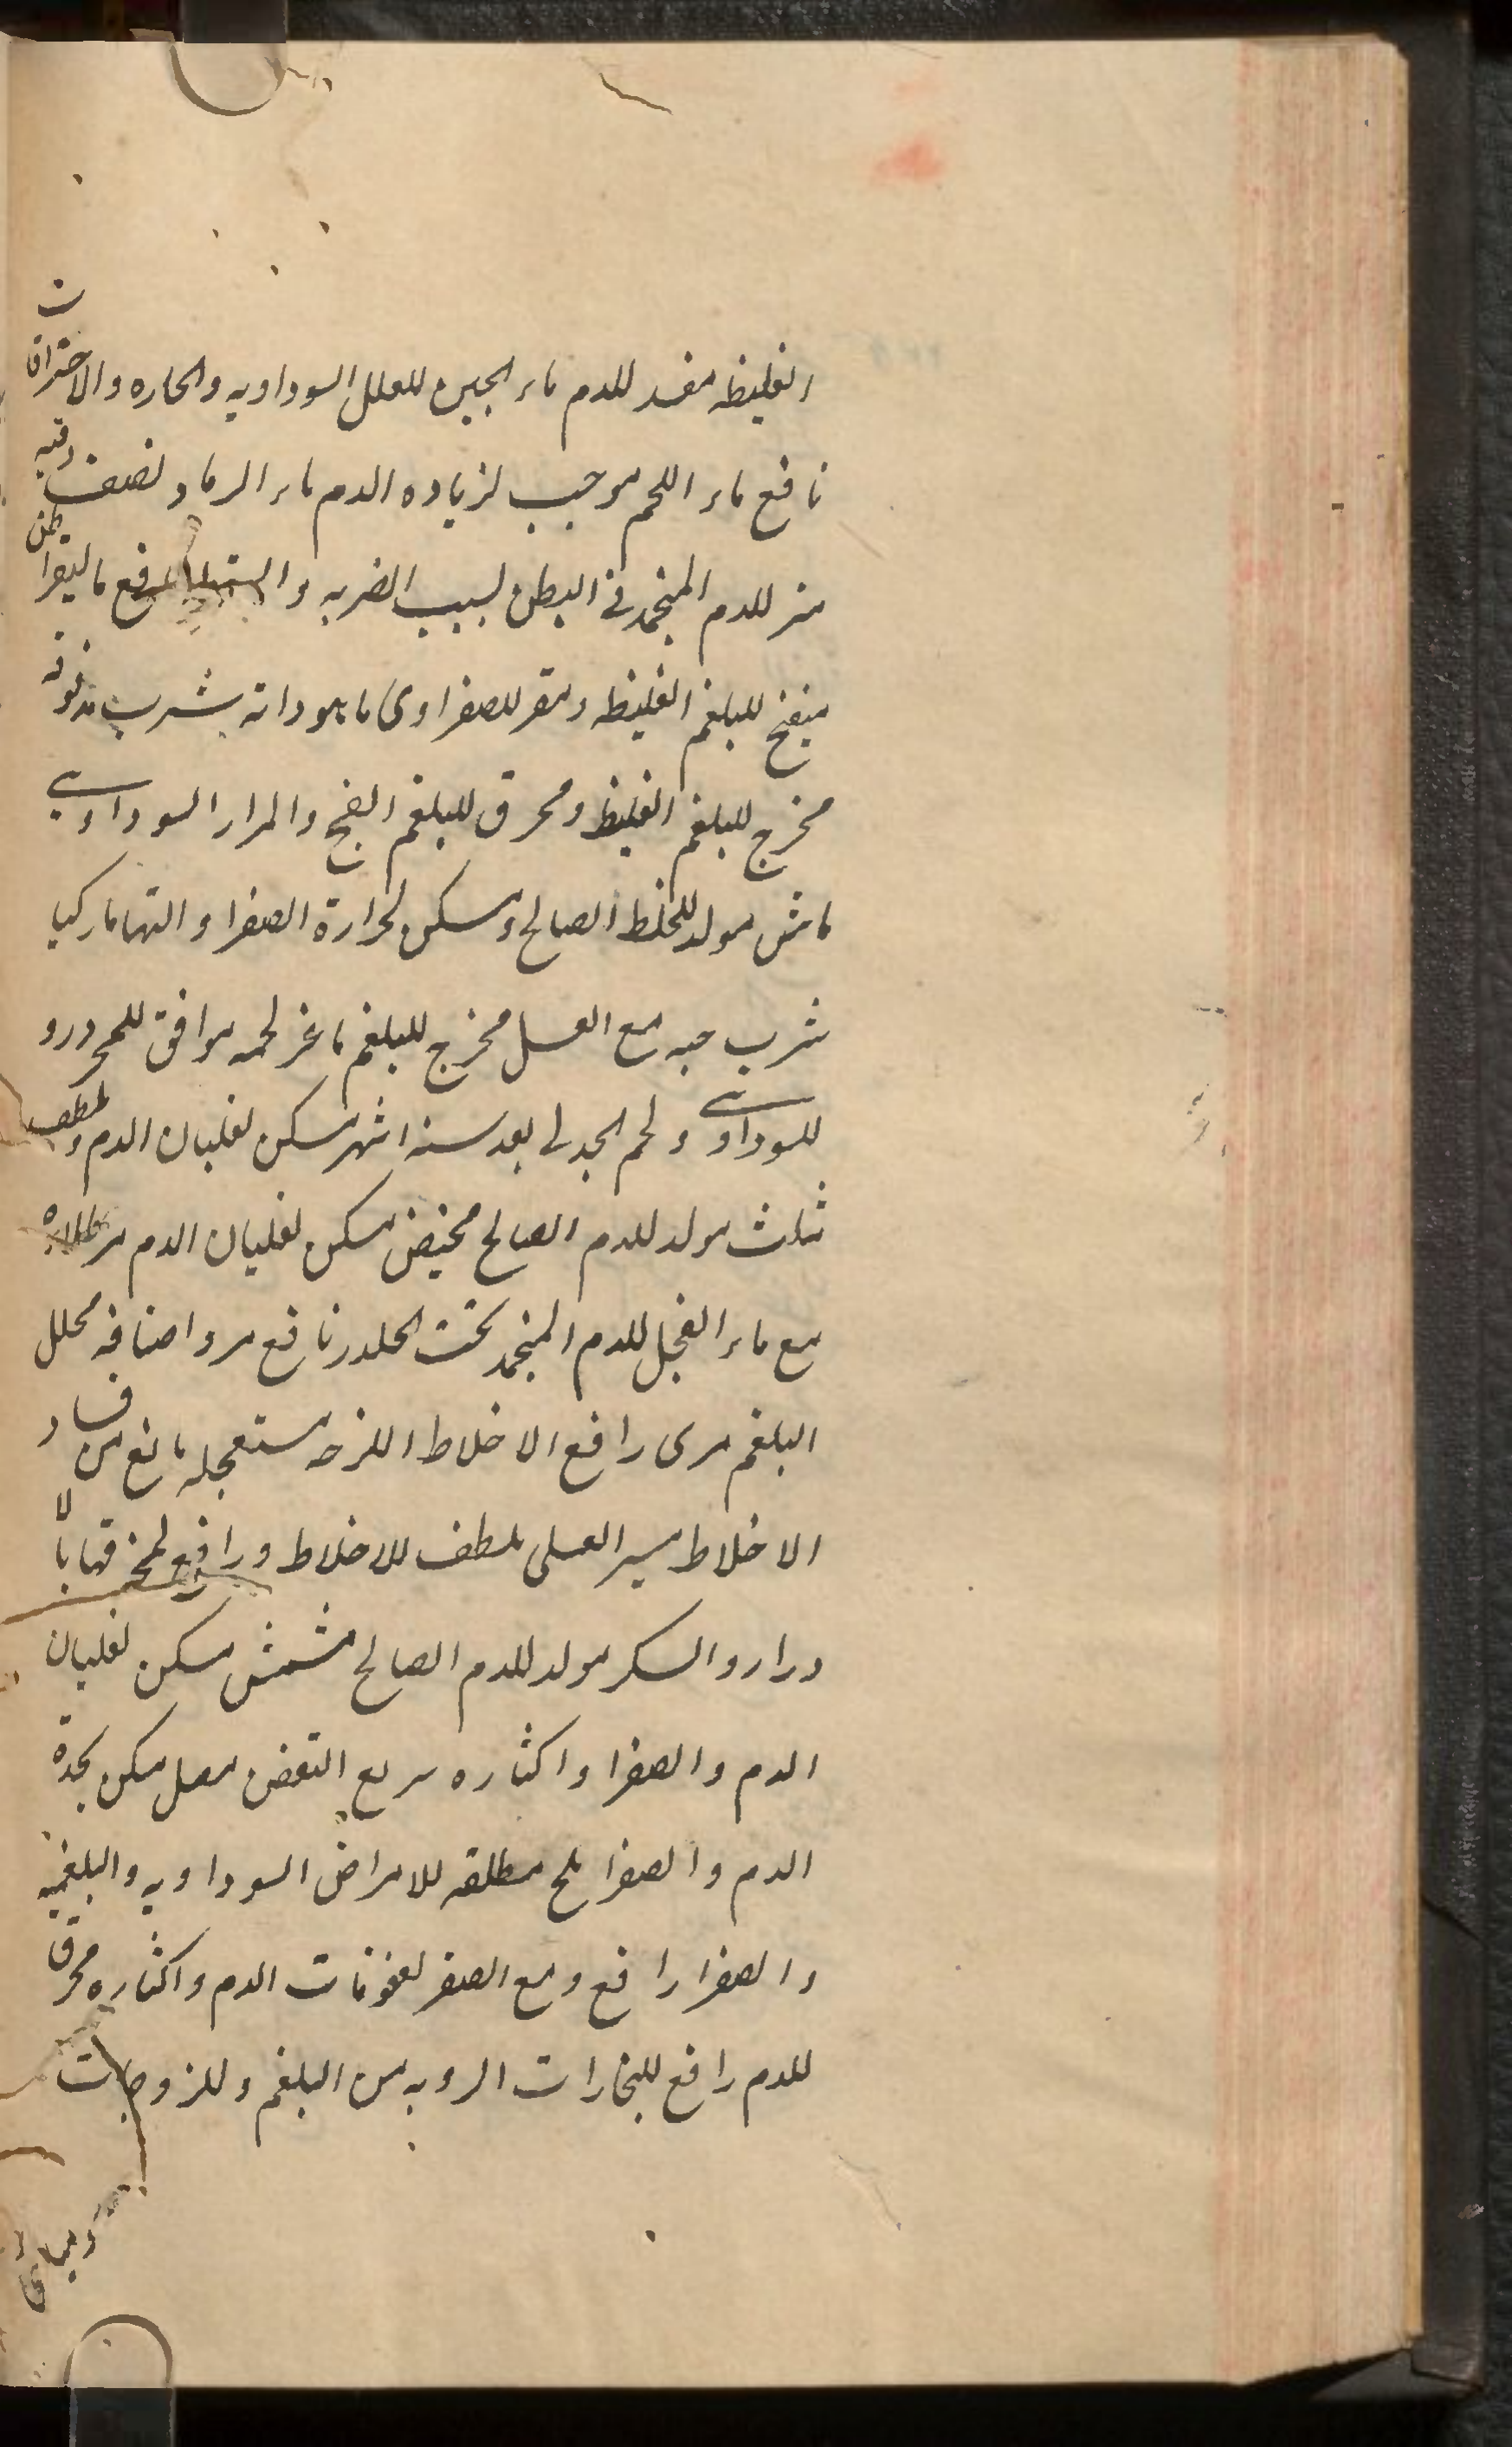 الغليظه مفسد للدم ماء الجبن للعلل السوداويه والحاره والاحتراقات
نافع ماء اللحم موجب لزياده الدم ماء الرماد نصف وقيه
منه للدم المنجمد في البطن لسبب الضربه و نافع
منضج للبلغم الغليظه ومضر للصفراوى ماهودانه شرب
مخرج للبلغم الغليظ ومحرق للبلغم الفج والمرار السوداوي
ماش مولد للخلط الصالح ومسكن لحرارة الصفرا و
شرب حبه مع العسل مخرج للبلغم ماعز لحمه موافق للمحرور و
للسوداوي ولحم الجدى بعد سته اشهر مسكن لغليان الدم وملطف
مثلث مولد للدم الصالح مخيض مسكن لغليان الدم مر طلاءه
مع ماء الفجل للدم المنجمد تحت الجلد نافع مرو اصنافه محلل
البلغم مرى رافع الاخلاط اللزجه مستعجله مانع من فساد
الاخلاط ميبر العسلى ملطف للاخلاط ورافع
والسكر مولد للدم الصالح مشمش مسكن لغليان
الدم والصفرا واكثاره سريع التعفن مصل مسكن بحدة
الدم والصفرا ملح مطلقه للامراض السوداويه والبلغميه
والصفرا رافع ومع الصفر لعفونات الدم واكثاره محرق
للدم رافع للبخارات الرديه من البلغم وللزوجات